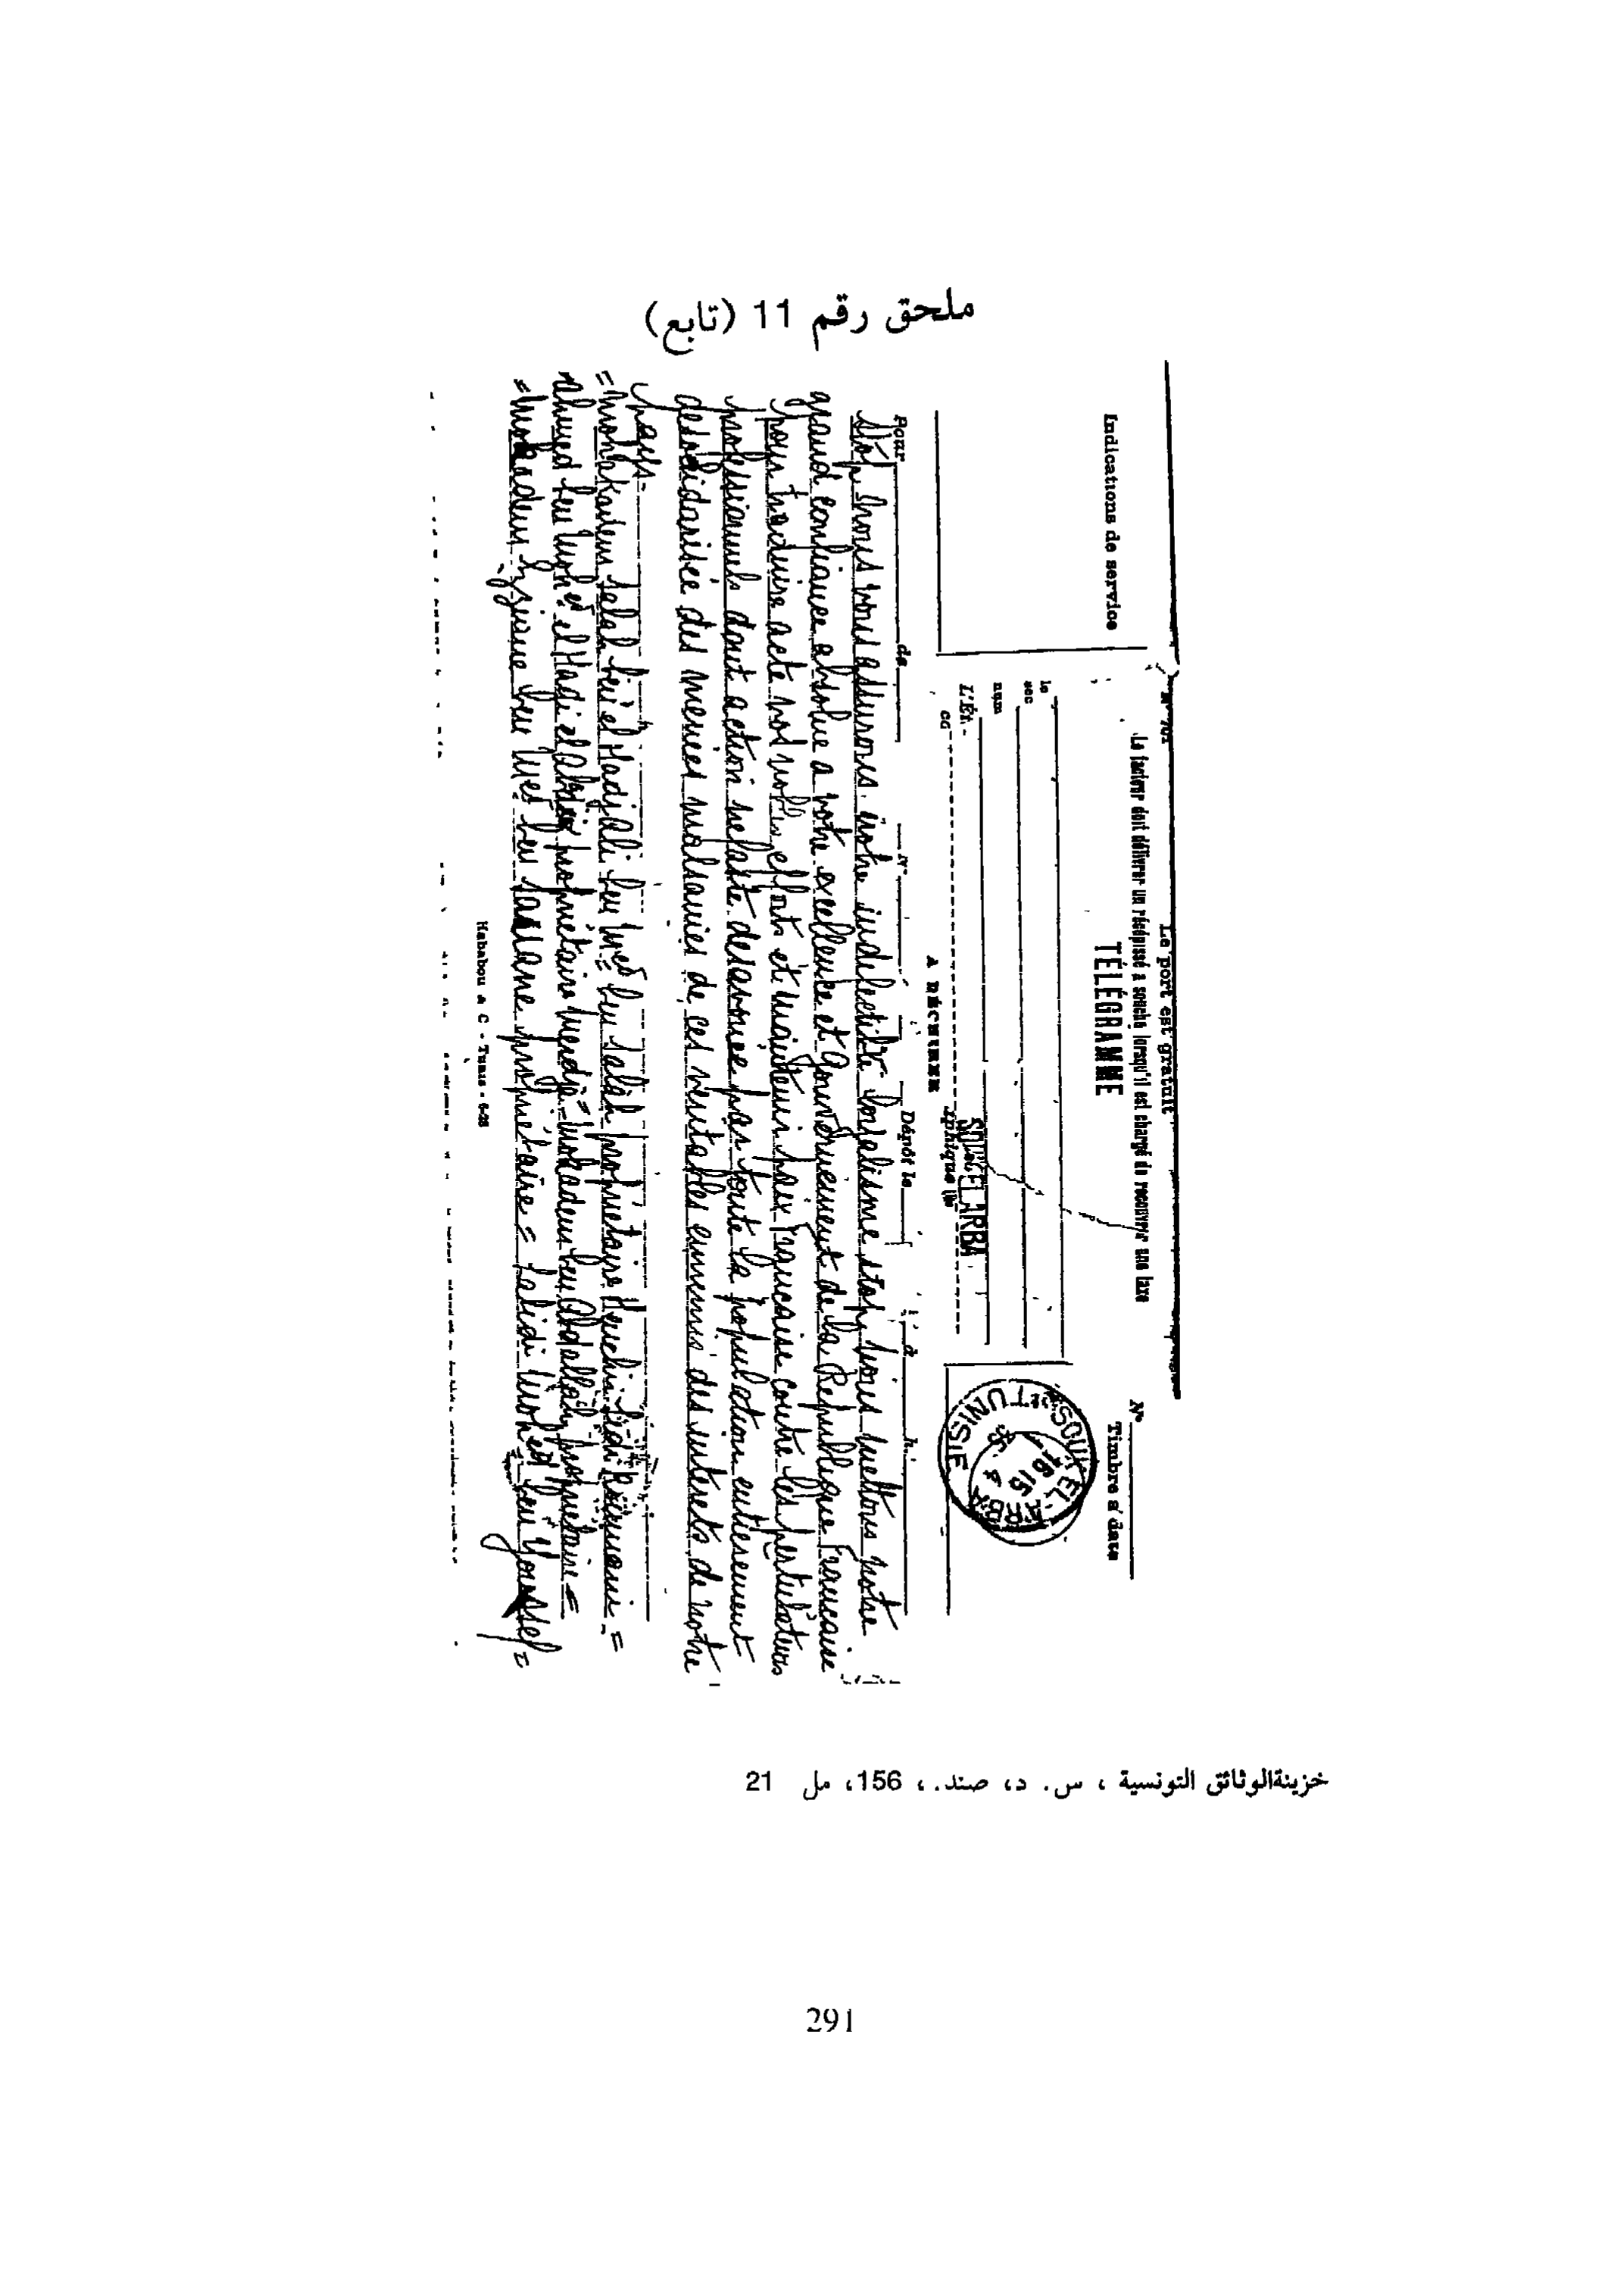 ملحق رقم 11 (تابع)
Le port est gratuit
Le facteur doit délivrer un récépissé à souche lorsqu'il est chargé de recouvrer une taxe
TÉLÉGRAMME
Indications de service
N°
Timbre à date
SOUK EL ARBA
TUNISIE
16 15
L'Ét.
SOUK EL ARBA
A DÉCHIRER
Pour de N° Dépôt le à h.
Stop nous vous assurons notre indefectible loyalisme stop nous mettons notre
grand confiance absolue a votre excellence et Gouvernement de la Republique Francaise
pour traduire acte nos nobles efforts et maintenir paix francaise contre les pertubateurs
professionnels dont action nefaste desavouee par toute la population entierement
desolidarisée des menées malsaines de ces veritables ennemis des interets de notre
pays -
= Salah ben el Hadj Ali ben Med ben Salah proprietaire =
ahmed ben Moh el Hadi el proprietaire = ben Abdallah proprietaire =
= ben Med ben proprietaire = ben Youssef =
Tunis
خزينةالوثائق التونسية ، س. د، صند. ، 156، مل 21
291